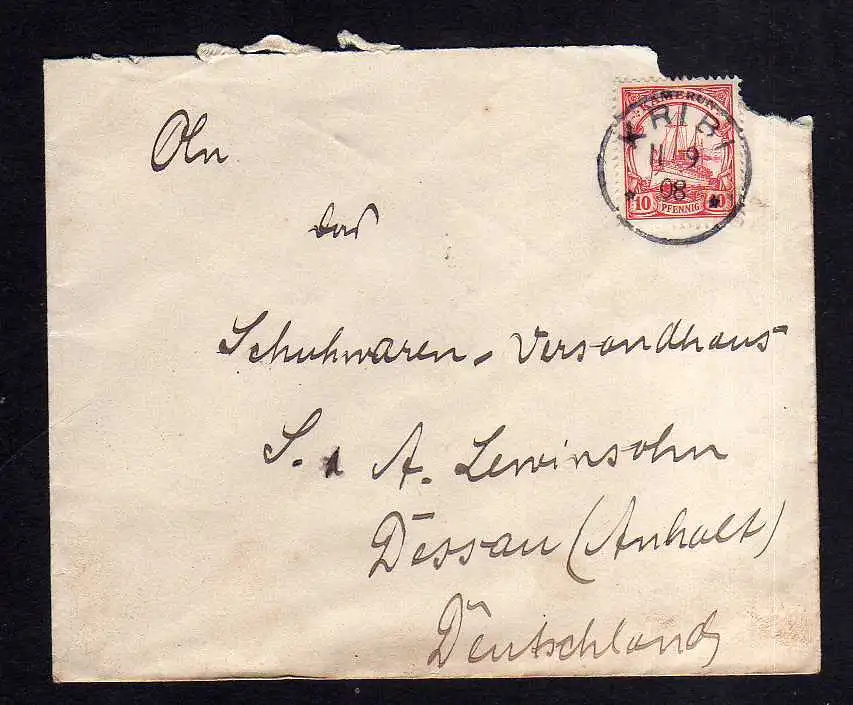 KAMERUN
KRIBI
11 9
08
10 PFENNIG 10
An
das
Schuhwaren-Versandhaus
S. & A. Lewinsohn
Dessau (Anhalt)
Deutschland